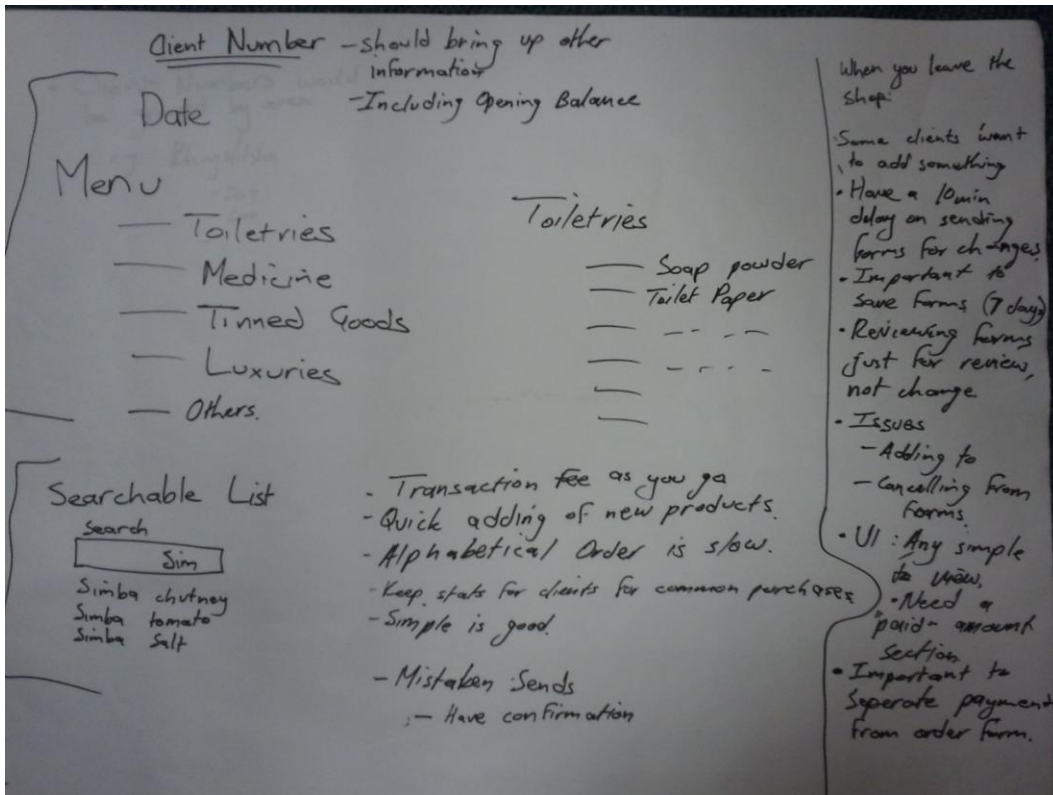 Client Number - should bring up other
information
Date
- Including Opening Balance
Menu
Toiletries
Medicine
Tinned Goods
Luxuries
Others.
Toiletries
Soap powder
Toilet Paper
Searchable List
Search
Sim
Simba chutney
Simba tomato
Simba Salt
- Transaction Fee as you go
- Quick adding of new products.
- Alphabetical Order is slow.
- Keep stats for clients for common purchases
- Simple is good.
- Mistaken Sends
- Have confirmation
When you leave the
shop:
Some clients want
to add something
• Have a 10min
delay on sending
forms for changes.
• Important to
save forms (7 days)
• Reviewing forms
just for review,
not change
• Issues
- Adding to
- Cancelling from
forms.
• UI : Any simple
to view,
• Need a
"paid" amount
section
• Important to
seperate payment
from order form.